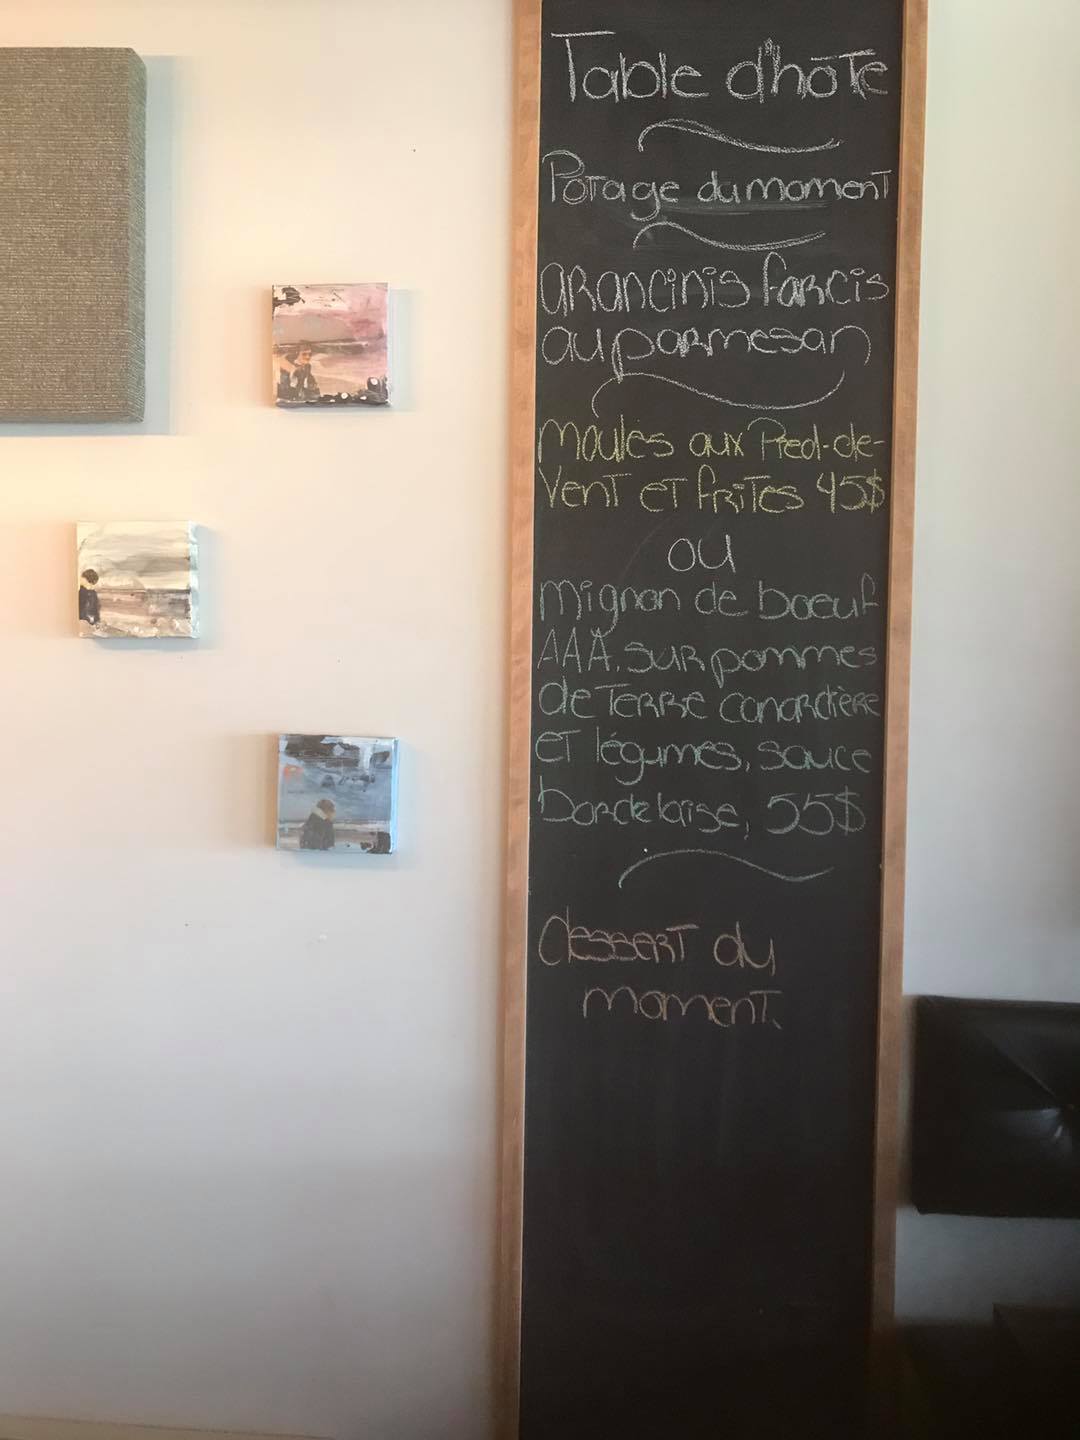 Table d'hôte
Potage du moment
arancinis farcis
au parmesan
moules aux Pied-de-
Vent et frites 45$
ou
mignon de boeuf
AAA, sur pommes
de terre canardière
et légumes, sauce
bordelaise, 55$
dessert du
moment.